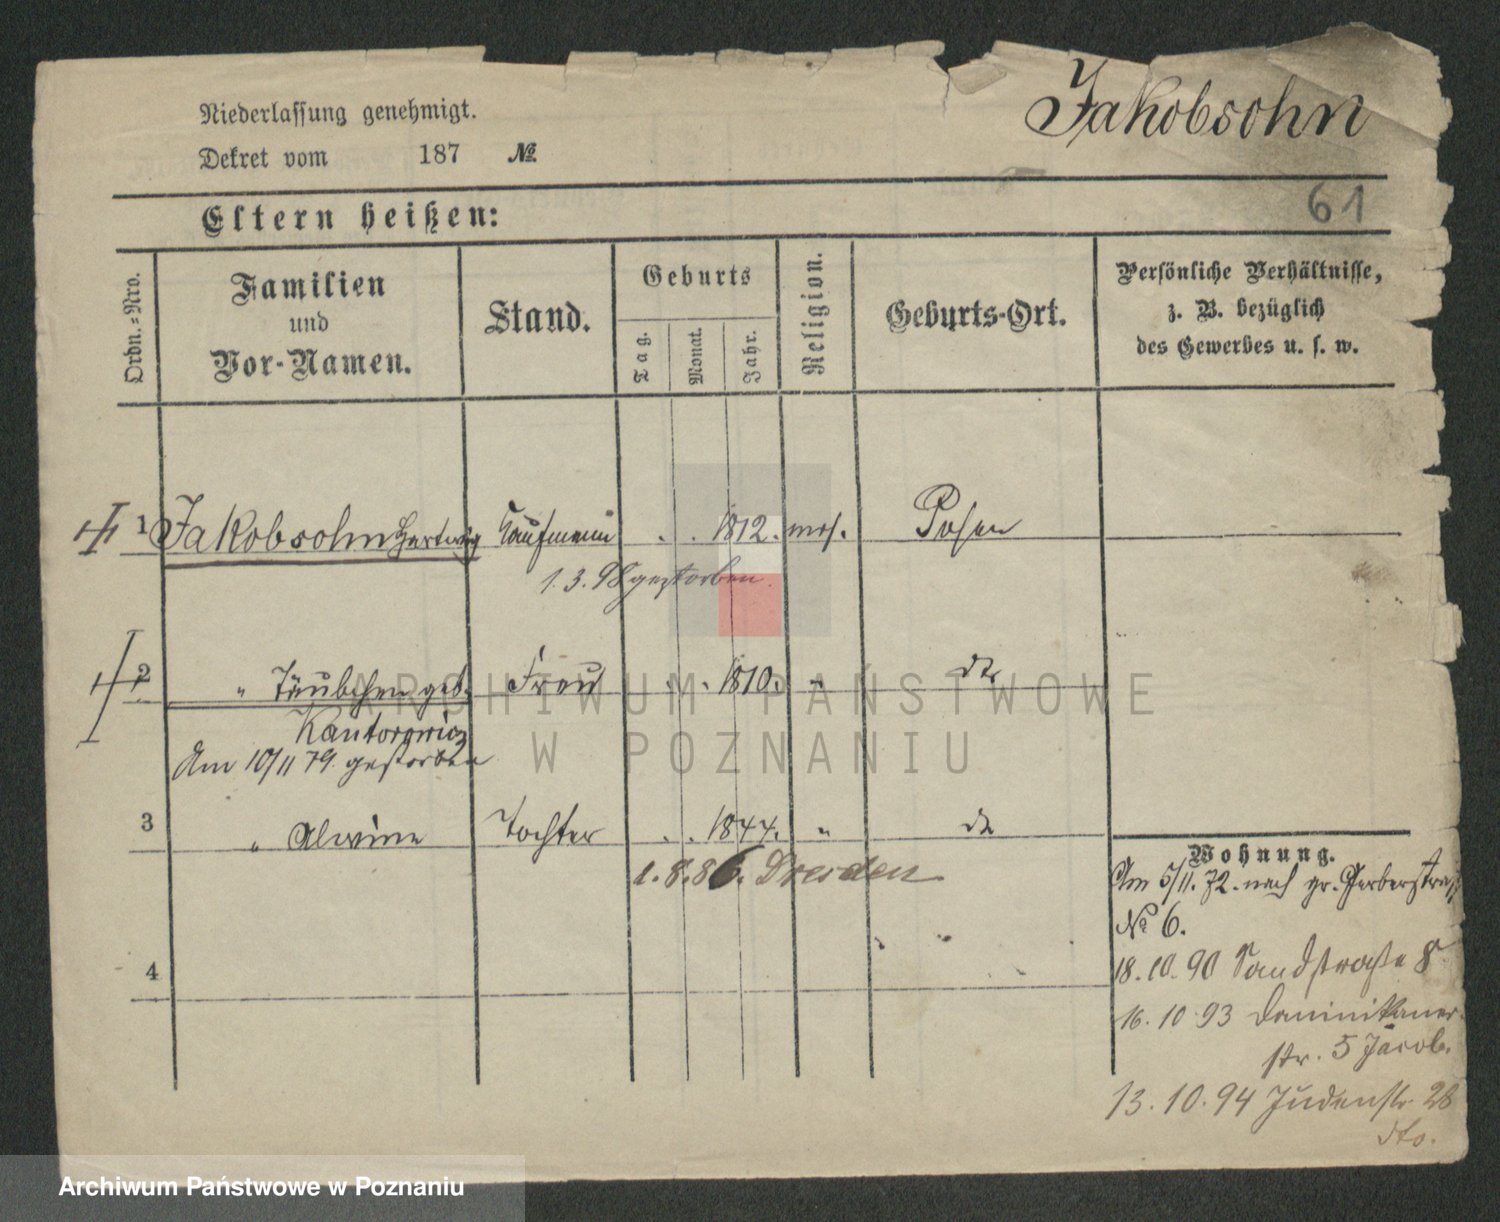 Jakobsohn
Niederlassung genehmigt.
Dekret vom 187 №
61
Eltern heißen:
Ordn.=Nro.
Familien
und
Vor-Namen.
Stand.
Geburts
Tag.
Monat.
Jahr.
Religion.
Geburts-Ort.
Persönliche Verhältnisse,
z. B. bezüglich
des Gewerbes u. s. w.
1 Jakobsohn Hartwig Kaufmann . . 1812. mos. Posen
1.3.98 gestorben.
2 " Täubchen geb. Frau . . 1810. " dto
Kantorowicz
Am 10/11 79. gestorben
3 " Alwine Tochter . . 1844. " do
1.8.86. Dresden
4
Wohnung.
Am 5/11.72. nach gr. Gerberstraße
№ 6.
18.10.90 Sandstraße 8
16.10.93 Dominikaner-
str. 5 Jacob.
13.10.94 Judenstr. 28
dto.
ARCHIWUM PAŃSTWOWE
W POZNANIU
Archiwum Państwowe w Poznaniu